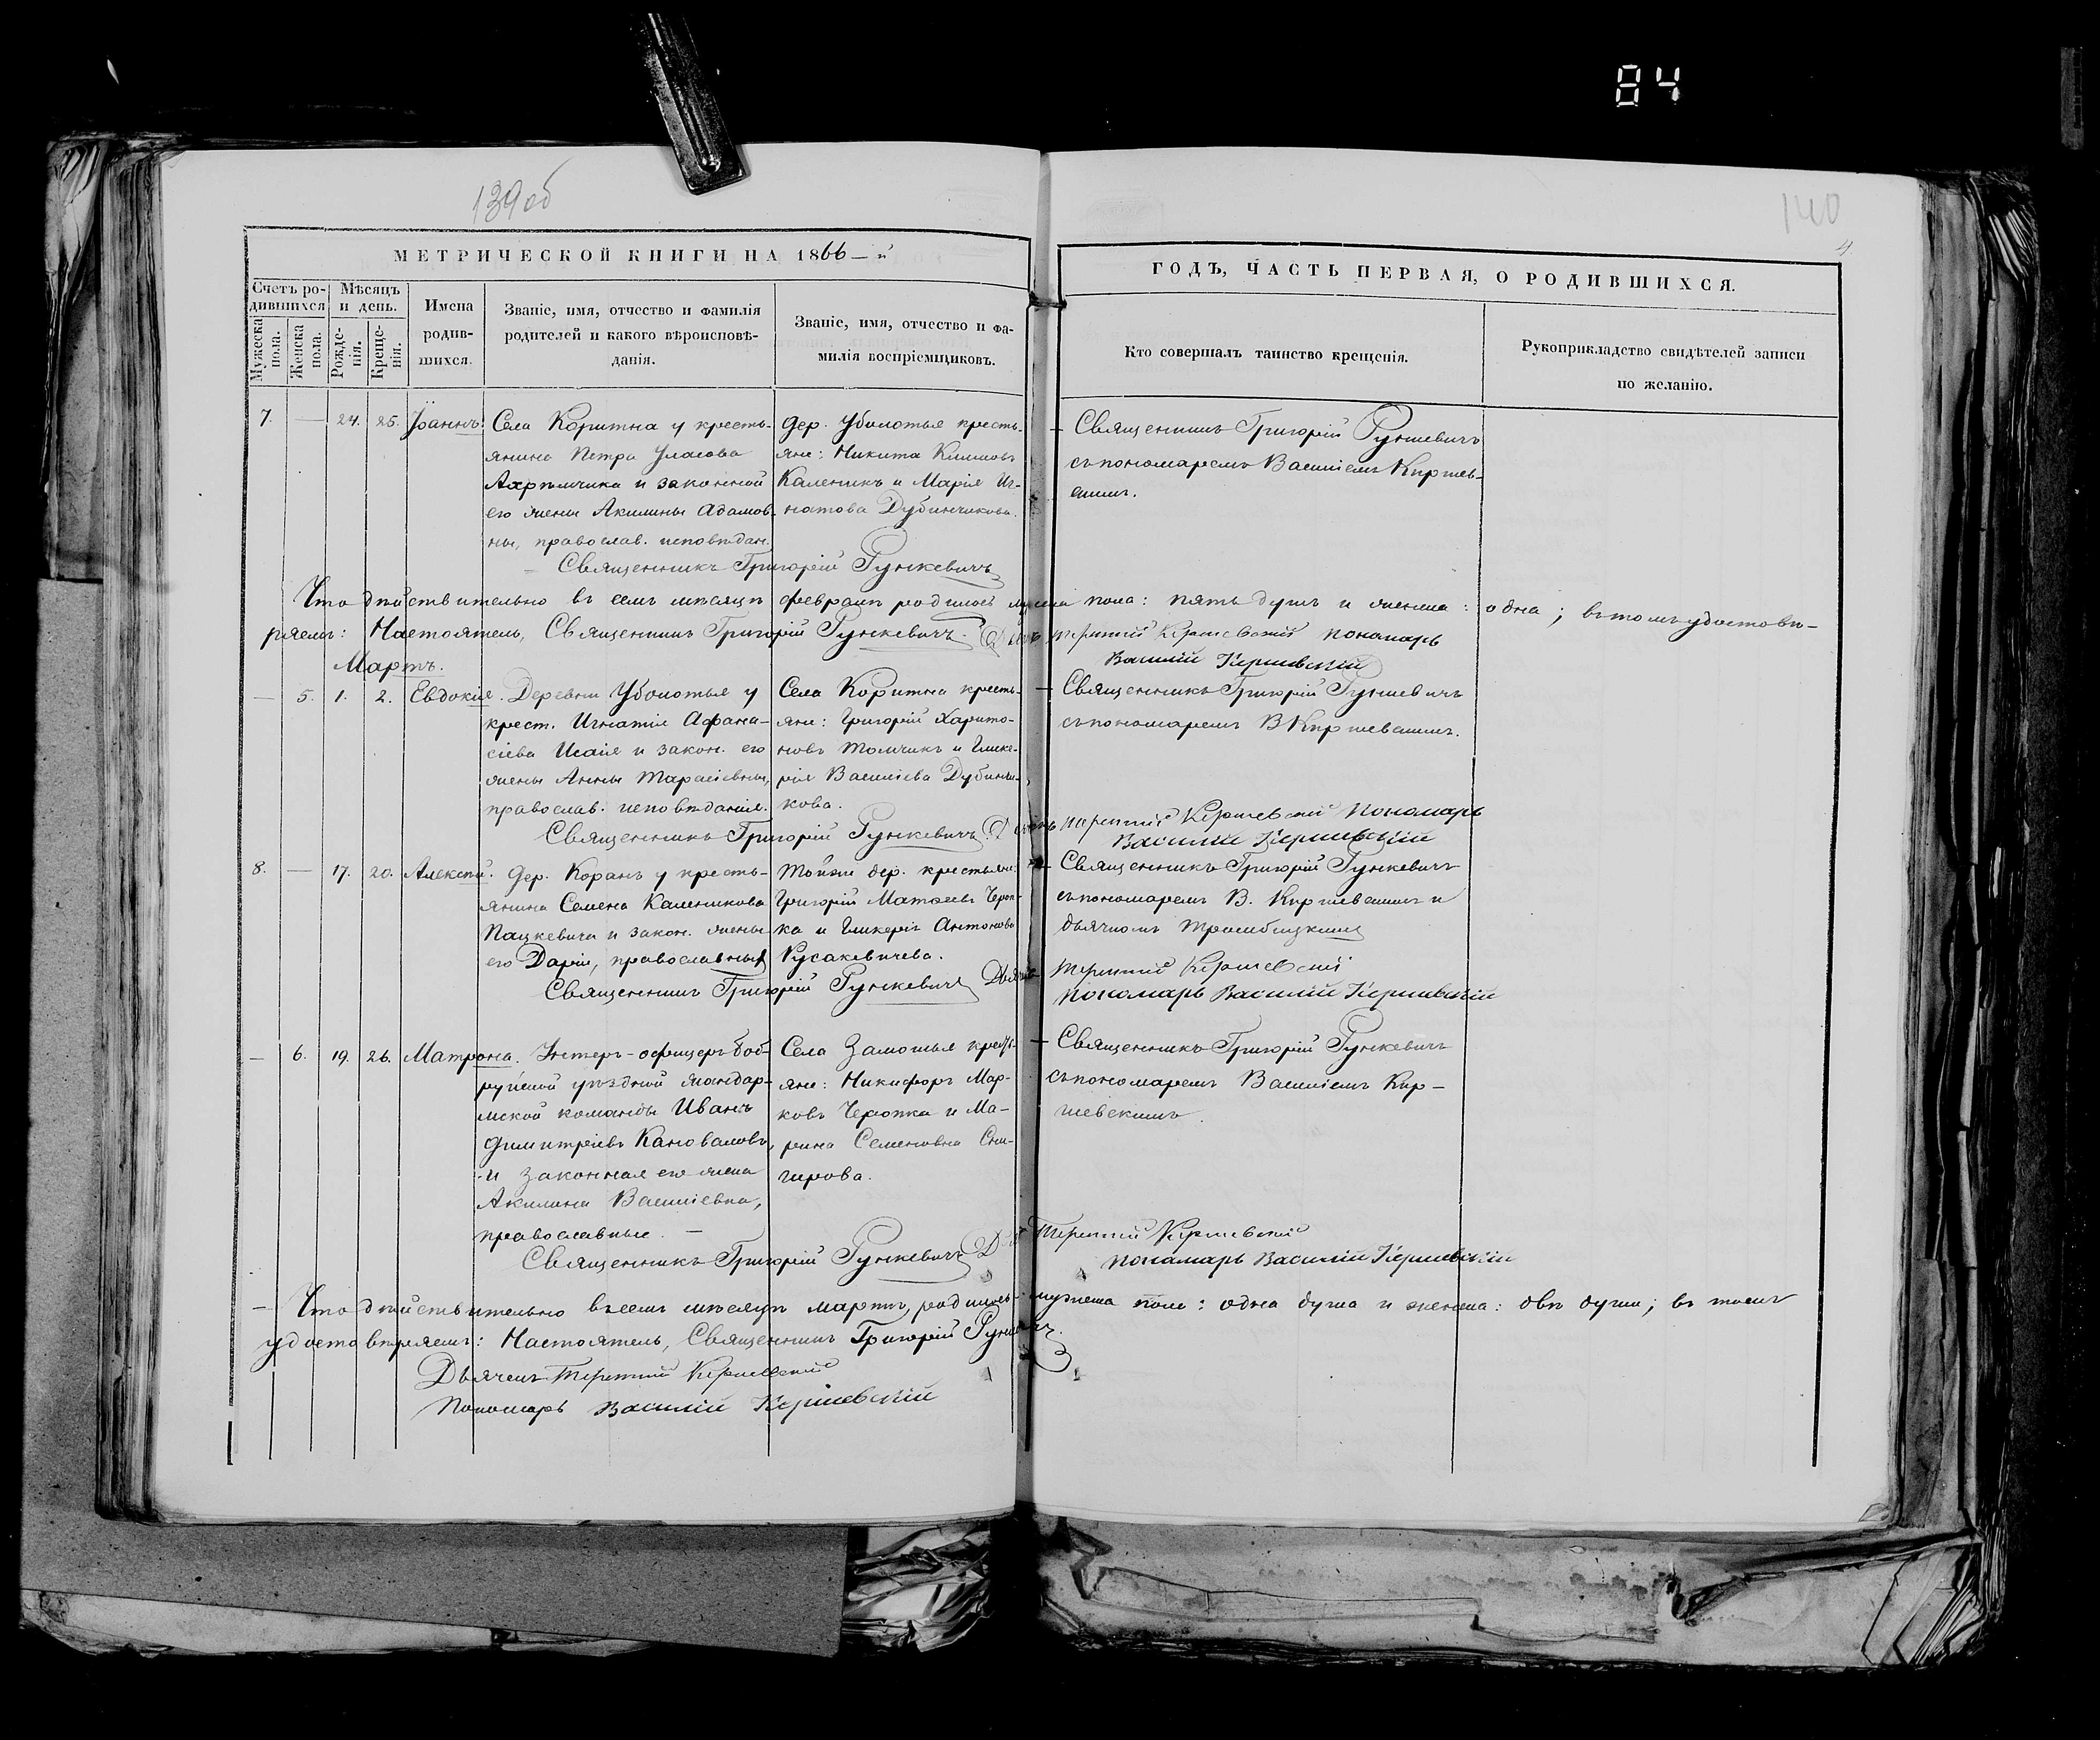 84
139об
140
4
МЕТРИЧЕСКОЙ КНИГИ НА 1866-й
ГОДЪ, ЧАСТЬ ПЕРВАЯ, О РОДИВШИХСЯ.
Счетъ родившихся
Мужеска пола.
Женска пола.
Мѣсяцъ и день.
Рожденія.
Крещенія.
Имена родившихся.
Званіе, имя, отчество и фамилія
родителей и какого вѣроисповѣ-
данія.
Званіе, имя, отчество и фа-
милія воспріемщиковъ.
Кто совершалъ таинство крещенія.
Рукоприкладство свидѣтелей записи
по желанію.
7. — 24. 25. Іоаннъ.
Села Коритна у кресть-
янина Петра Уласова
и законной
его жены Акилины Адамов-
ны, православ. исповѣдан.
Дер. Убологья кресть-
яне: Никита Климовъ
Каленикъ и Марія Иг-
натова Дубинчикова.
Священникъ Григорій Рункевичъ
съ пономаремъ Василіемъ Киршев-
скимъ.
Священникъ Григорій Рункевичъ
Что дѣйствительно въ семъ мѣсяцѣ февралѣ родилось мужеска пола: пять душъ и женска: одна; въ томъ удостовѣ-
ряемъ: Настоятель, Священникъ Григорій Рункевичъ. Терентій Киршевскій пономарь
Василій Киршевскій
Мартъ.
— 5. 1. 2. Евдокія.
Деревни Убологья у
крест. Игнатія Афана-
сіева Исаія и закон. его
жены Анны Тарасіевны,
православ. исповѣданія.
Села Коритна кресть-
яне: Григорій Харито-
новъ Толчикъ и Глике-
рія Василіева Дубинчи-
кова.
Священникъ Григорій Рункевичъ
съ пономаремъ В Киршевскимъ.
Священникъ Григорій Рункевичъ Терентій Киршевскій Пономарь
Василій Киршевскій
8. — 17. 20. Алексій.
Дер. Коранъ у кресть-
янина Семена Каленикова
Пацкевича и закон. жены
его Даріи, православныя
Тойже дер. крестьяне
Григорій Матѳеевъ Череп-
ка и Гликерія Антонова
Русакевичева.
Священникъ Григорій Рункевичъ
съ пономаремъ В. Киршевскимъ и
дьячкомъ
Священникъ Григорій Рункевичъ Дьячекъ Терентій Киршевскій
пономарь Василій Киршевскій
— 6. 19. 26. Матрона.
Унтеръ-офицеръ Боб-
руйской уѣздной жандар-
мской команды Иванъ
Димитріевъ Кановаловъ,
и законная его жена
Акилина Василіевна,
православные. —
Села Замошья кресть-
яне: Никифоръ Мар-
ковъ Черепка и Ма-
рина Семеновна Сни-
гирова.
Священникъ Григорій Рункевичъ
съ пономаремъ Василіемъ Кир-
шевскимъ.
Священникъ Григорій Рункевичъ Терентій Киршевскій
пономарь Василій Киршевскій
— Что дѣйствительно въ семъ мѣсяцѣ мартѣ, родилось: мужеска пола: одна душа и женска: двѣ души; въ томъ
удостовѣряемъ: Настоятель, Священникъ Григорій Рункевичъ.
Дьячекъ Терентій Киршевскій
Пономарь Василій Киршевскій